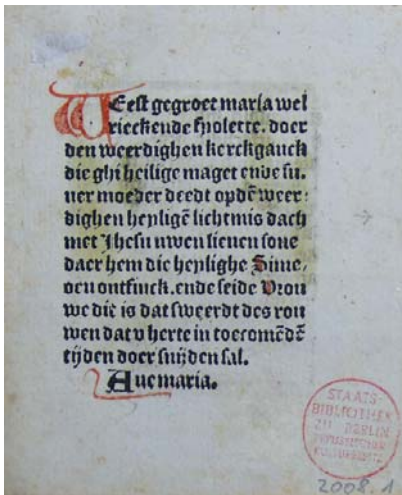 WEest gegroet maria wel
rieckende fyolette. doer
den weerdighen kerckganck
die ghi heilige maget ende su.
uer moeder deedt opdē weer-
dighen heyligē lichtmis dach
met Jhesu uwen lieuen sone
daer hem die heylighe Sime,
oen ontfinck. ende seide Vrou
we die is dat sweerdt des rou
wen dat v herte in toecomēdē
tijden doer snijden sal.
Aue maria.
STAATS-
BIBLIOTHEK
ZU BERLIN
PREUSSISCHER
KULTURBESITZ
2008.1